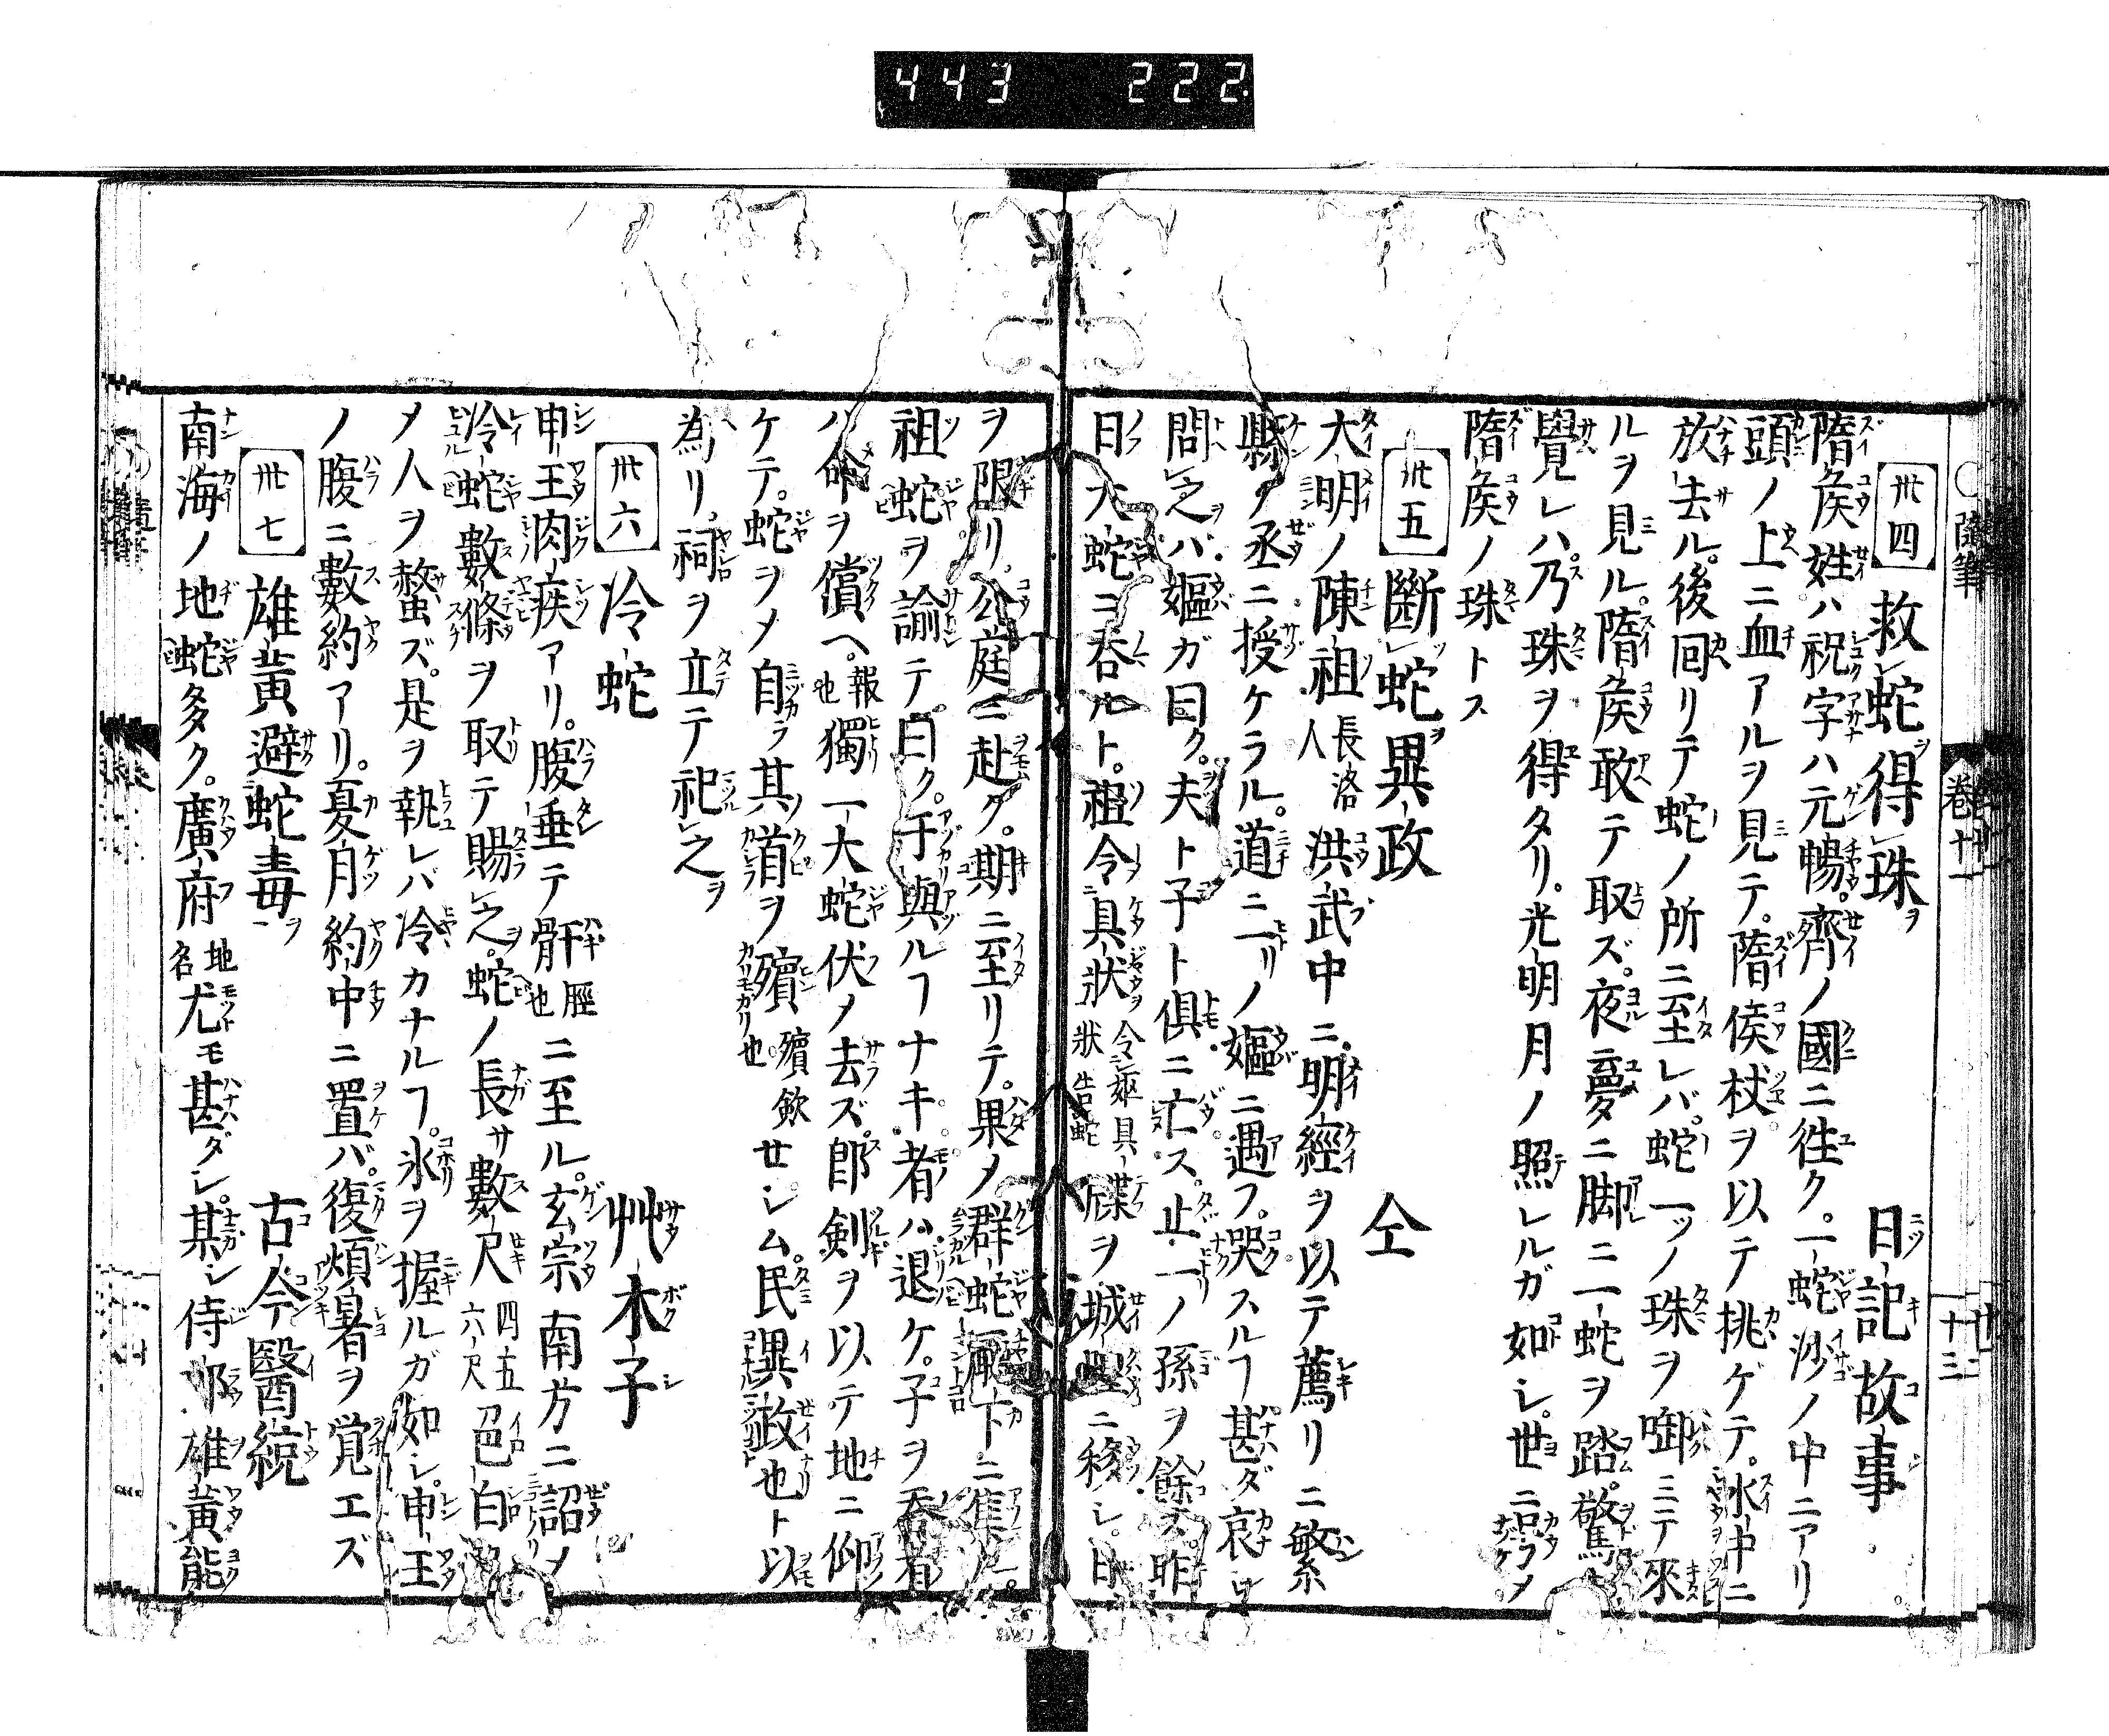 443 222
○隨筆 卷十一 十三
卅四 救㆑蛇得㆑珠ヲ 日記故事
隋侯姓ハ祝字ハ元暢。齊ノ國ニ徃ク。一蛇沙ノ中ニアリ
頭ノ上ニ血アルヲ見テ。隋侯杖ヲ以テ挑ゲテ。水中ニ
放㆑去ル。後回リテ蛇ノ所ニ至レバ。蛇一ツノ珠ヲ啣ミテ來
ルヲ見ル。隋侯敢テ取ズ。夜夢ニ脚ニ一蛇ヲ踏。驚
覺レハ乃珠ヲ得タリ。光明月ノ照レルガ如シ。世ニ号メ
隋侯ノ珠トス
卅五 斷㆑蛇ヲ異政 仝
大明ノ陳祖長洛人洪武中ニ明經ヲ以テ薦リニ繁
縣ノ丞ニ授ケラル。道ニ一リノ嫗ニ遇フ。哭スルフ甚ダ哀シ
問㆑之ヲハ嫗ガ曰ク。夫ト子ト俱ニ亡ス。止一ノ孫ヲ餘ス。昨
日大蛇ニ呑ルト。祖令具狀 牒ヲ城 ニ移シ。日
ヲ限リ。公庭ニ赴ク。期ニ至リテ。果メ群蛇 下ニ集ル。
祖蛇ヲ諭テ曰ク。于與ルフナキ者ハ退ケ。子ヲ吞者
ハ命ヲ償ヘ。報也獨一大蛇伏メ去ズ。郎剣ヲ以テ地ニ仰
ケテ。蛇ヲメ自ラ其首ヲ殯 殯歛也 セシム。民異政也ト以
為リ。祠ヲ立テ祀㆑之ヲ
卅六 冷蛇 艸木子
申王肉疾アリ。腹垂テ骭脛也ニ至ル。玄宗南方ニ詔メ
冷蛇數條ヲ取テ賜㆑之ヲ。蛇ノ長サ數尺四五六尺色白
メ人ヲ螫ズ。是ヲ執レバ冷カナルフ。氷ヲ握ルガ如シ。申王
ノ腹ニ數約アリ。夏月約中ニ置バ。復煩暑ヲ覚エズ
卅七 雄黃避蛇毒ヲ 古今醫統
南海ノ地蛇多ク。廣府地名尤モ甚ダシ。某シ侍郎雄黃能